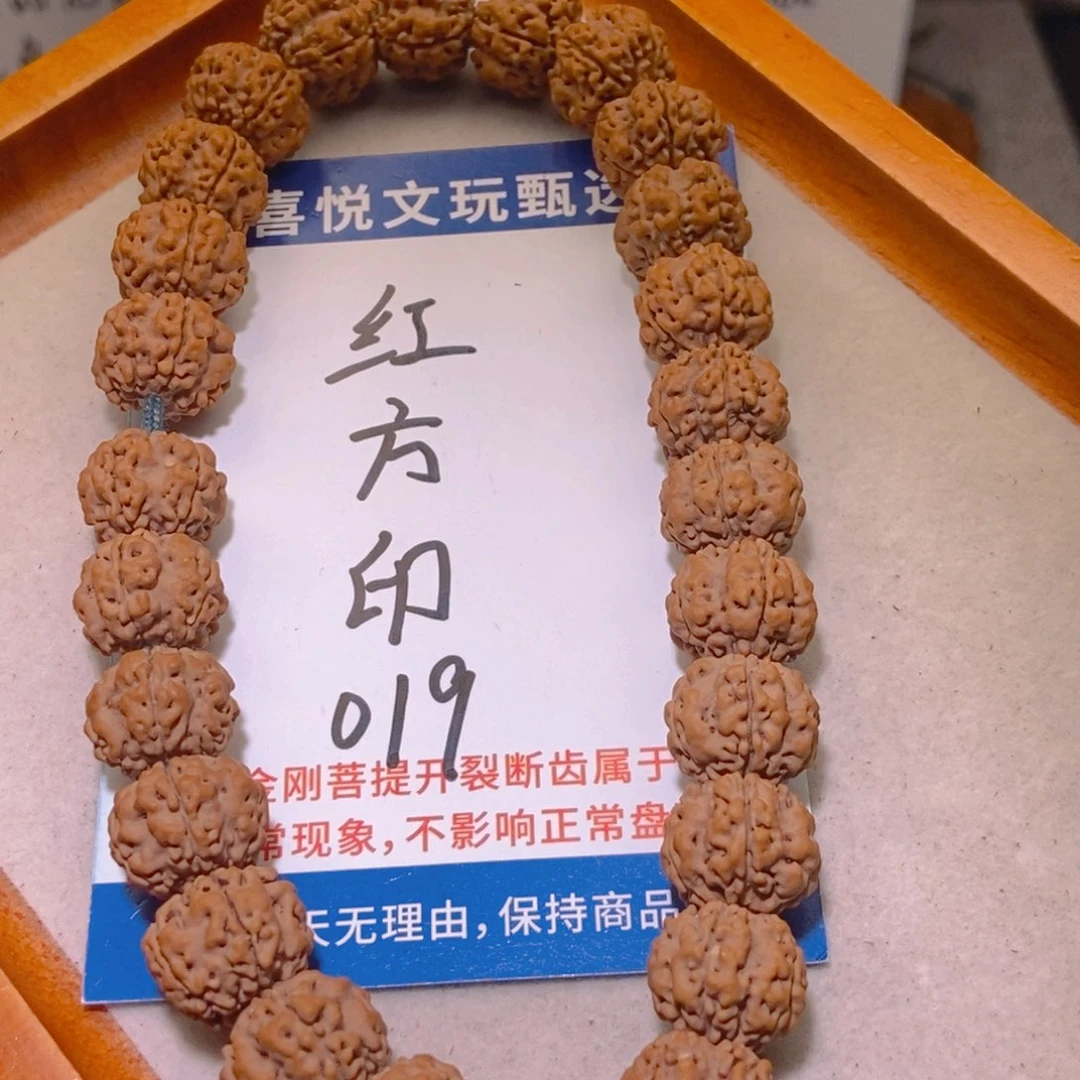 喜悦文玩甄选
红
方
印
019
金刚菩提开裂断齿属于
常现象,不影响正常盘
天无理由,保持商品